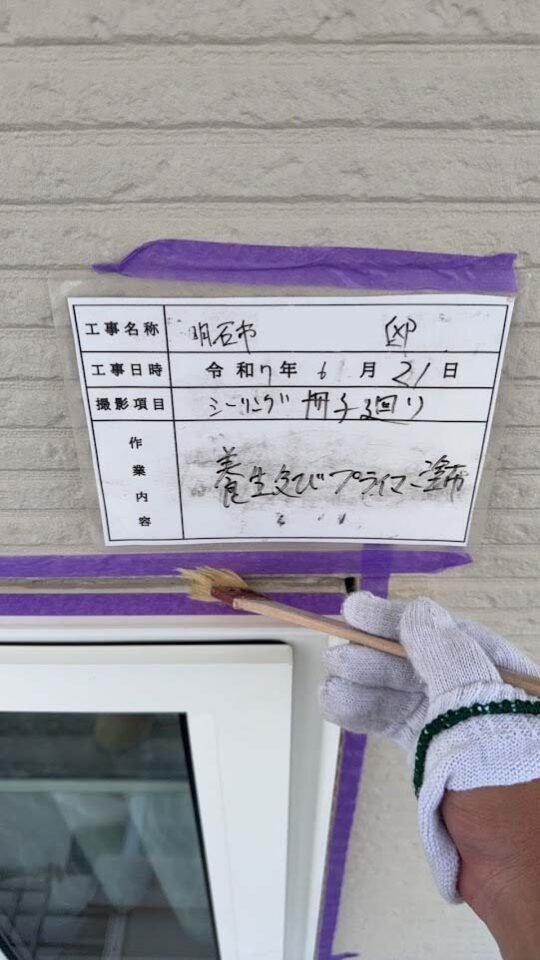 工事名称 明石市 邸
工事日時 令和7年 6月 21日
撮影項目 シーリング 冊子廻り
作業内容 養生及びプライマー塗布